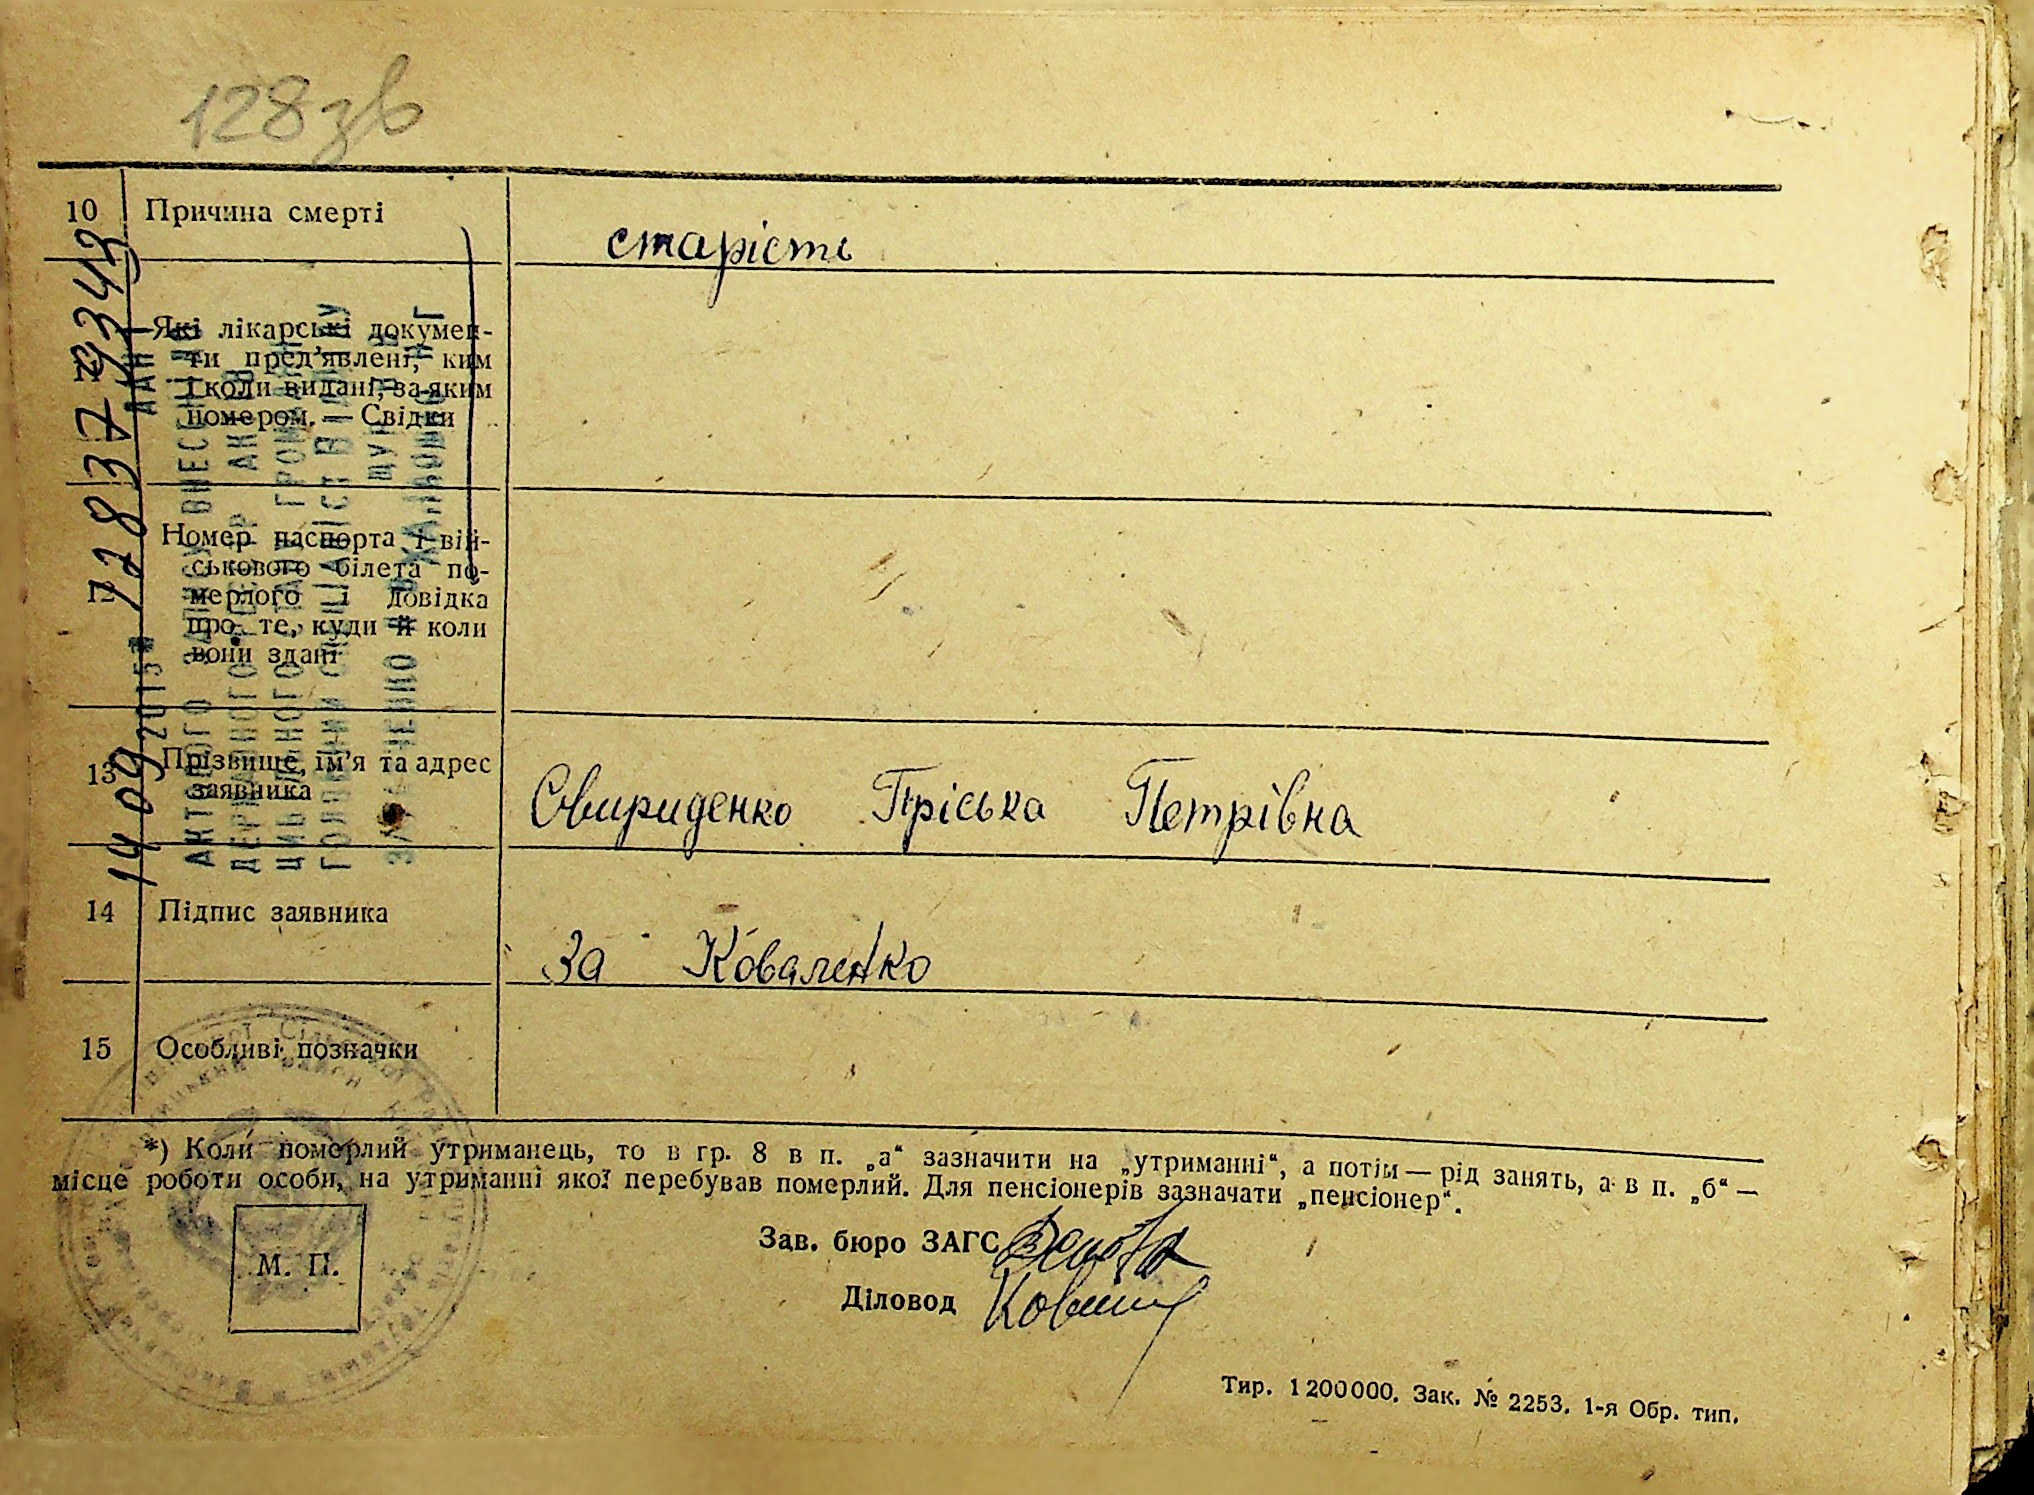 128 зв
10 Причина смерті
старість
Які лікарські докумен-
ти пред’явлені, ким
і коли видані, за яким
номером. — Свідки
12 Номер паспорта і вій-
ськового білета по-
мерлого і довідка
про те, куди й коли
вони здані
13 Прізвище, ім’я та адрес
заявника
Свириденко Пріська Петрівна
14 Підпис заявника
За Коваленко
15 Особливі позначки
*) Коли померлий утриманець, то в гр. 8 в п. „а“ зазначити на „утриманні“, а потім — рід занять, а в п. „б“ —
місце роботи особи, на утриманні якої перебував померлий. Для пенсіонерів зазначати „пенсіонер“.
М. П.
Зав. бюро ЗАГС
Діловод
Тир. 1200000. Зак. № 2253. 1-я Обр. тип.
14 09 2015
АКТОВОГО ЗАПИСУ ВНЕСЕНІ ДО
ДЕРЖАВНОГО РЕЄСТР
ЦИВІЛЬНОГО СТАНУ ГРОМАДЯН
ГОЛОВНИЙ СПЕЦІАЛІСТ ВІДДІЛУ